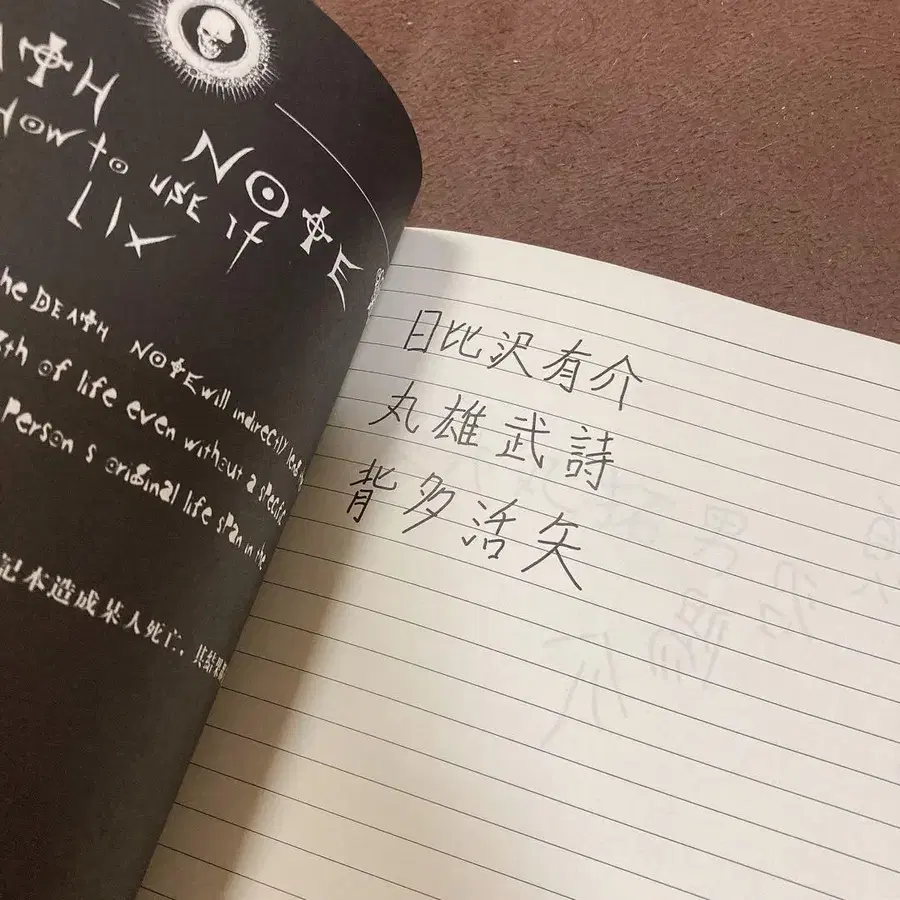 DEATH NOTE
How to use it
LIX
The DEATH NOTE will indirectly
of life even without a specific
person's original life span in the
记本造成某人死亡，其结果
日比沢有介
丸雄武詩
背多活矢